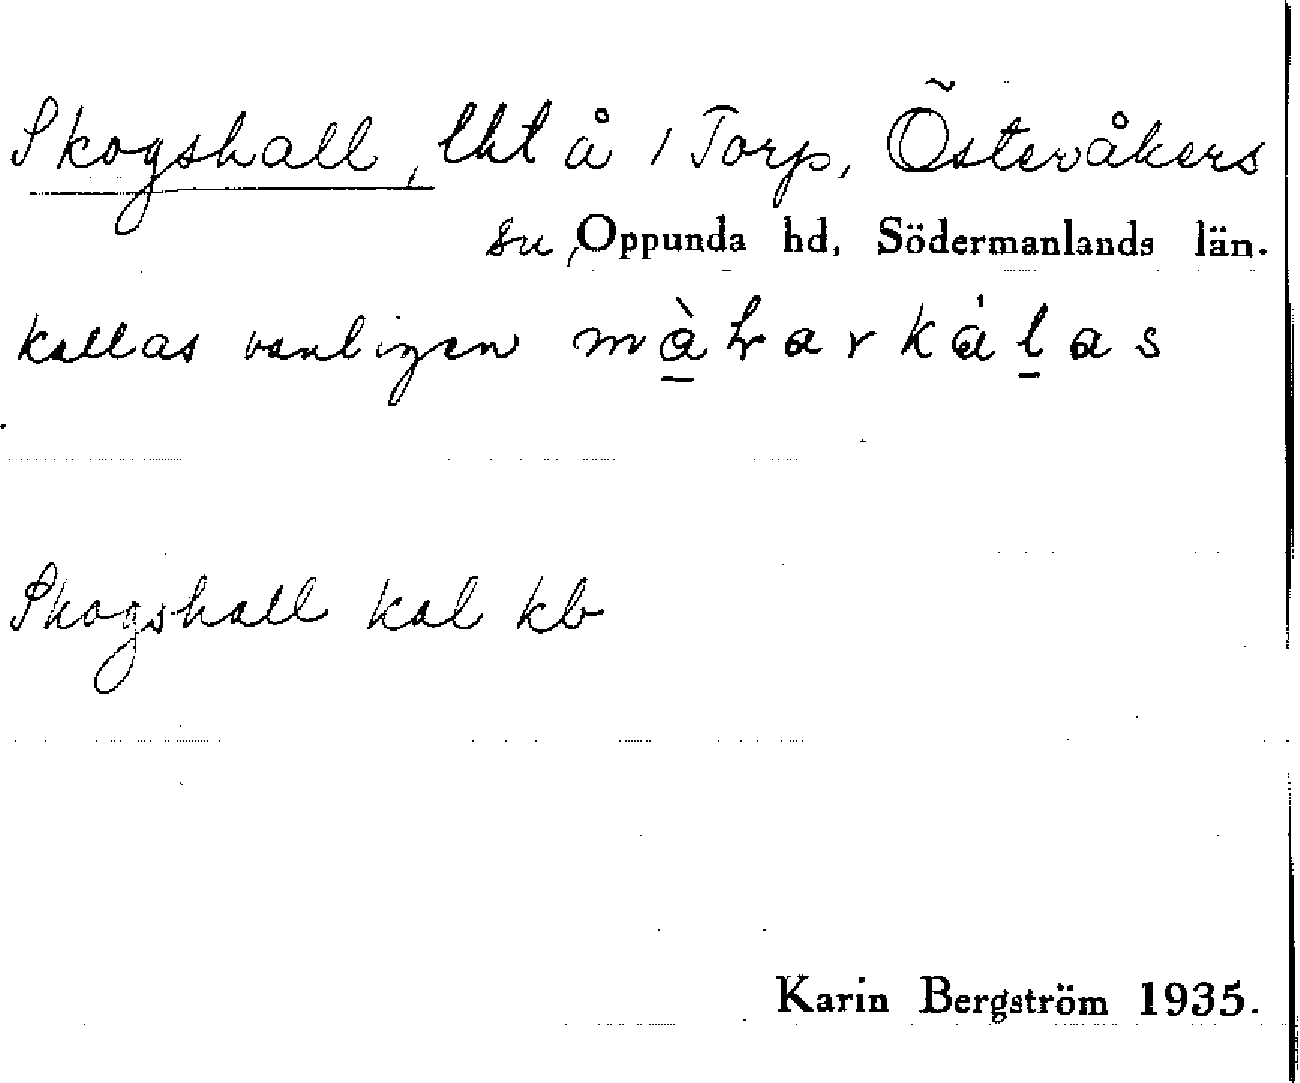 Skogshall, lht å 1 Torp, Österåkers
sn, Oppunda hd, Södermanlands län.
kallas vanligen
Skogshall kal kb
Karin Bergström 1935.